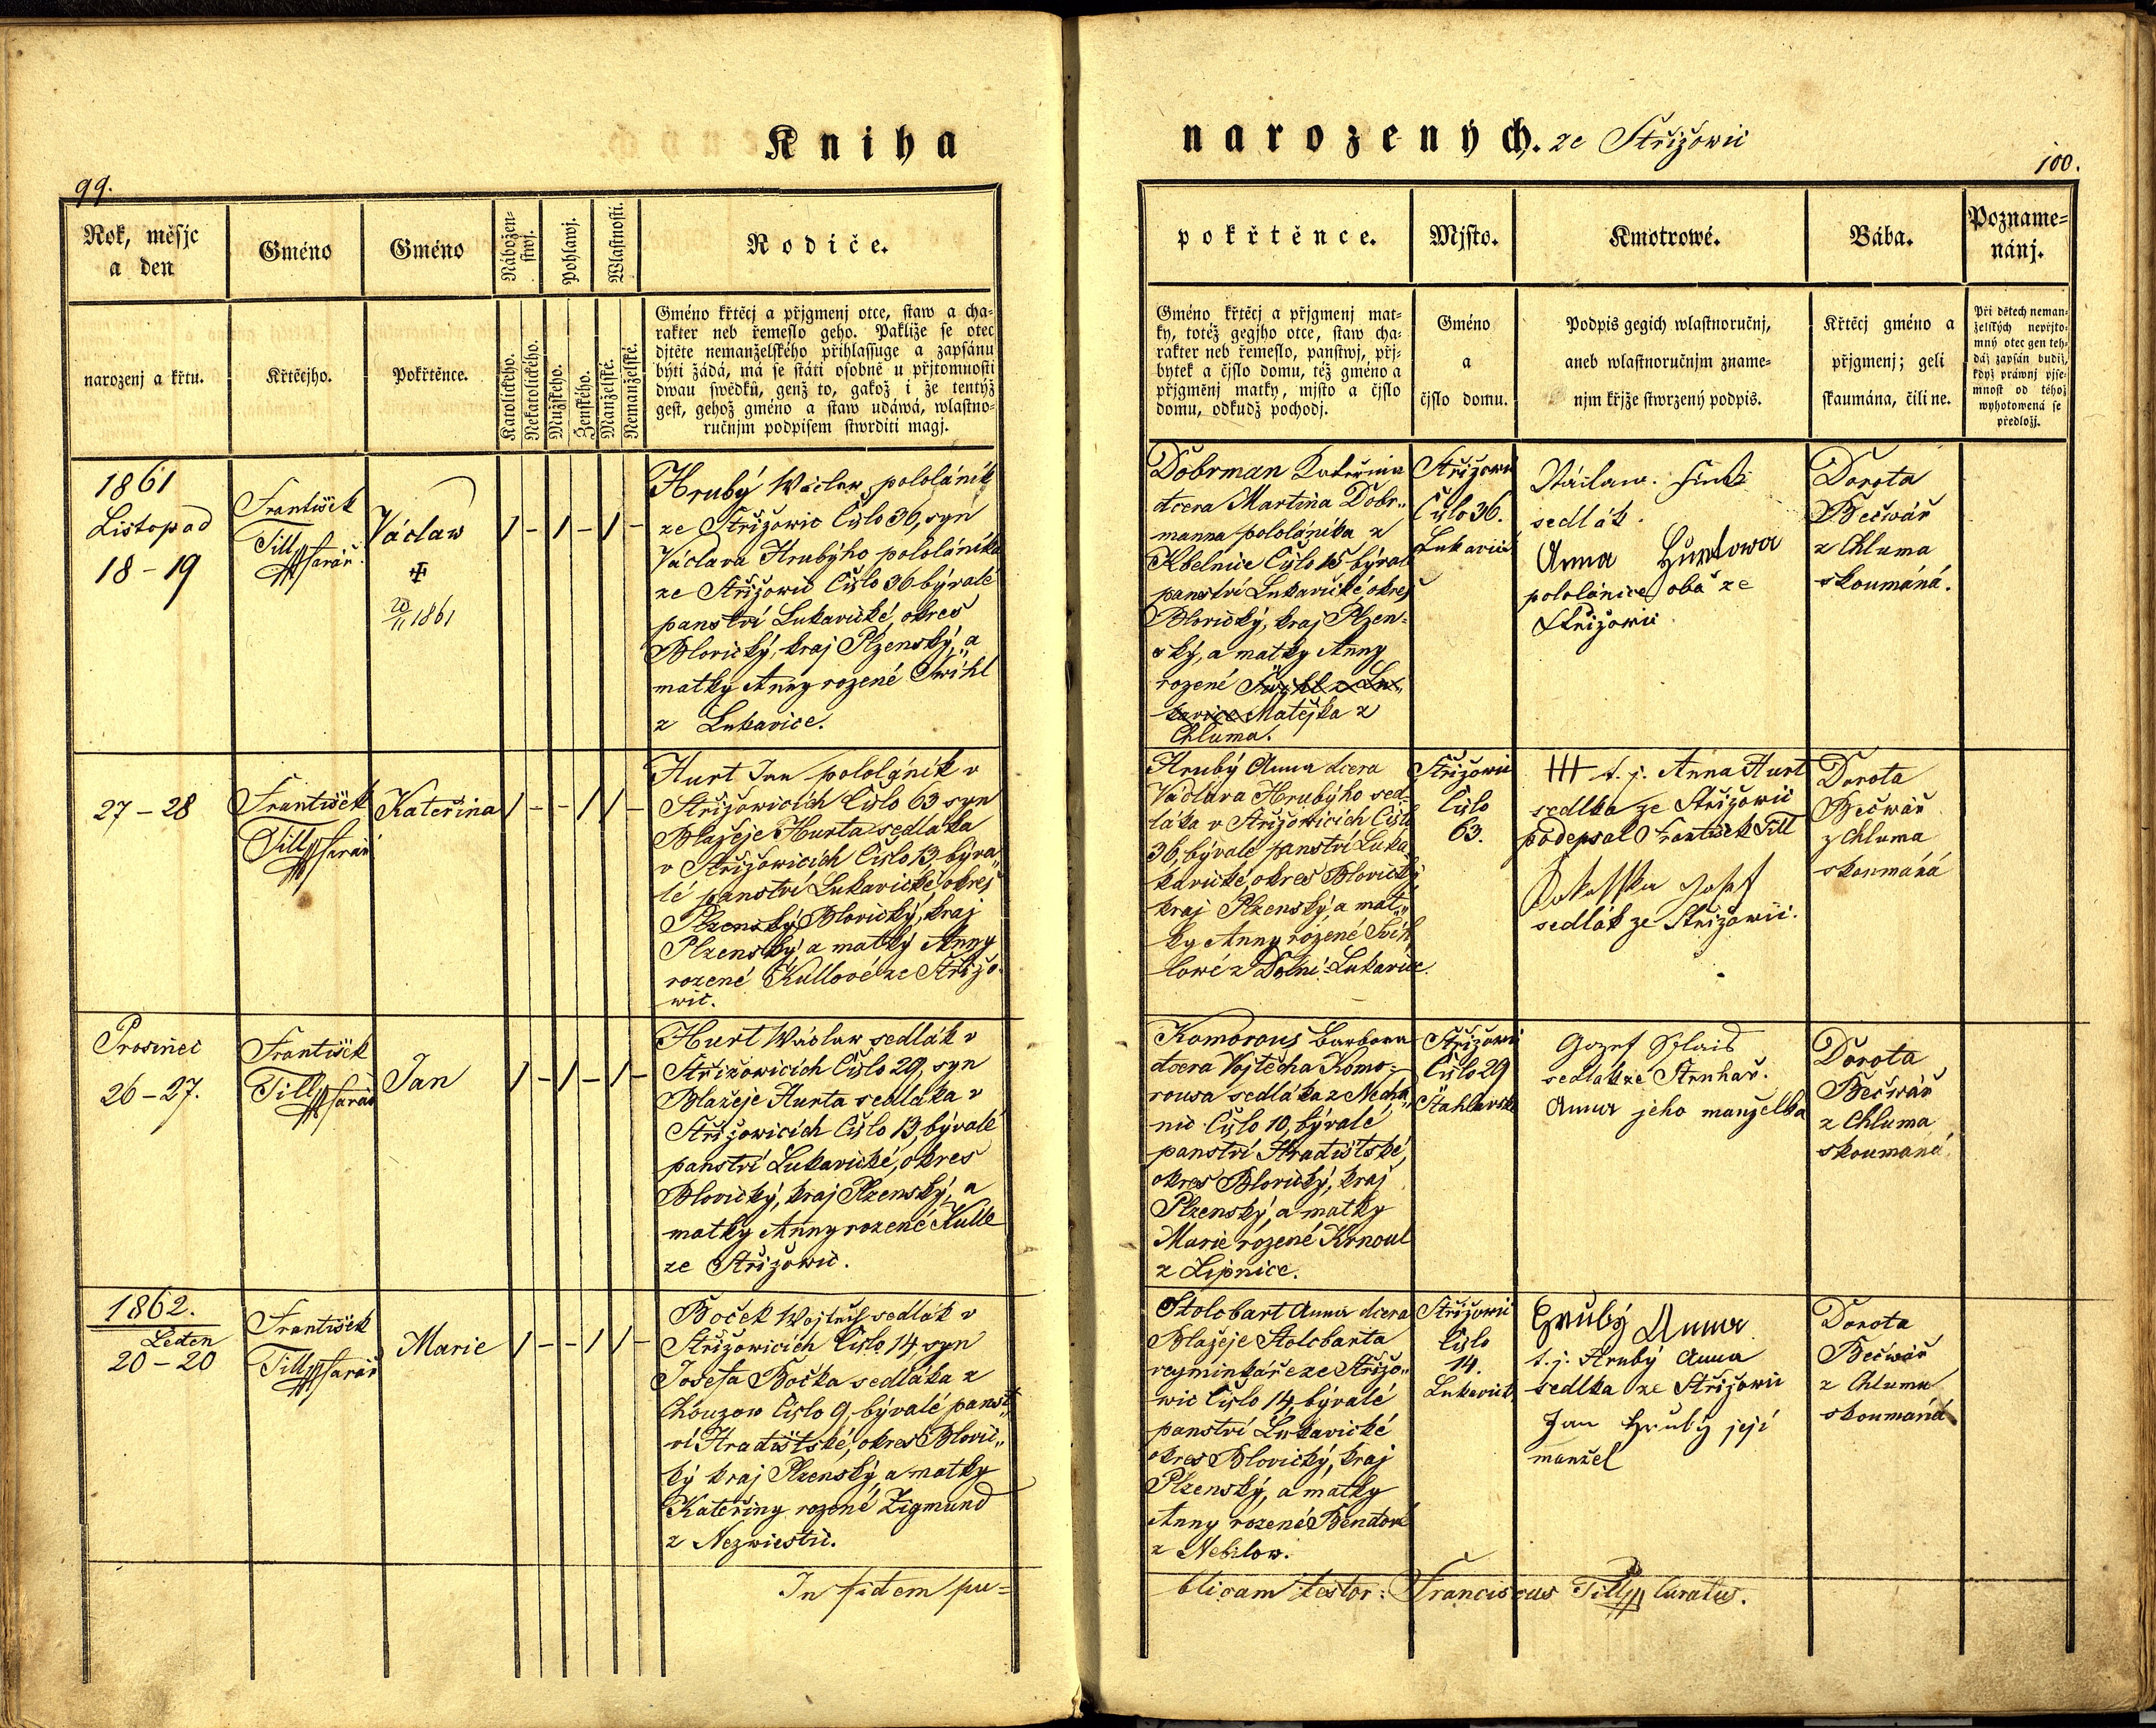 Kniha
99.
Rok, měsjc
a den
Gméno
Gméno
Nábožen-
stwj.
Pohlawj.
Wlastnosti.
Rodiče.
narozenj a křtu.
Křtěcjho.
Pokřtěnce.
Katolického.
Nekatolického.
Mužského.
Ženského.
Manželské.
Nemanželské.
Gméno křtěcj a přjgmenj otce, staw a cha-
rakter neb řemeslo geho. Pakliže se otec
djtěte nemanželského přihlassuge a zapsánu
býti žádá, má se státi osobně u přjtomnosti
dwau swědků, genž to, gakož i že tentýž
gest, gehož gméno a staw udáwá, wlastno-
ručnjm podpisem stwrditi magj.
1861
Listopad
18-19
František
Till farář
Václaw
20/11 1861
1 - 1 - 1 -
Hrubý Wáclaw pololáník
ze Střižowic Číslo 36, syn
Václava Hrubýho pololáníka
ze Střižowic Číslo 36 bývalé
panství Lukavické, okres
Blovický, kraj Plzenský, a
matky Anny rozené Swihl
z Lukavice.
27-28
František
Till farář
Kateřina
1 - - 1 1 -
Hurt Jan pololáník v
Střižowicích Číslo 63 syn
Blažeje Hurta sedláka
v Střižowicích Číslo 13, býva„
lé panství Lukavické okres
Plzenský Blovický, kraj
Plzenský a matky Anny
rozené Kullové ze Střižo-
wic.
Prosinec
26-27.
František
Till farář
Jan
1 - 1 - 1 -
Hurt Wáclaw sedlák v
Střižowicích Číslo 29, syn
Blažeje Hurta sedláka v
Střižowicích Číslo 13, bývalé
panství Lukavické, okres
Blovický, kraj Plzenský, a
matky Anny rozené Kulle
ze Střižowic.
1862.
Leden
20-20
František
Till farář
Marie
1 - - 1 1 -
Boček Wojtěch sedlák v
Střižowicích Číslo 14, syn
Josefa Bočka sedláka z
Chouzow Číslo 9, bývalé panst„
ví Hradištské, okres Blovic„
ký kraj Plzenský, a matky
Kateřiny rozené Zigmund
z Nezwiestic.
In fidem pu=
narozených. ze Střižowic
100.
pokřtěnce.
Mjsto.
Kmotrowé.
Bába.
Pozname-
nánj.
Gméno křtěcj a přjgmenj mat-
ky, totéž gegjho otce, staw cha-
rakter neb řemeslo, panstwj, přj-
bytek a čjslo domu, též gméno a
přjgměnj matky, mjsto a čjslo
domu, odkudž pochodj.
Gméno
a
čjslo domu.
Podpis gegich wlastnoručnj,
aneb wlastnoručnjm zname-
njm křjže stwrzený podpis.
Křtěcj gméno a
přjgmenj; geli
skaumána, čili ne.
Při dětech neman-
želských nepřjto-
mný otec gen teh-
dáž zapsán budiž,
když práwnj pjse-
mnost od téhož
wyhotowená se
předložj.
Dobrman Kateřina
dcera Martina Dobr„
manna pololáníka z
Kbelnice Číslo 15 bývalé
panství Lukavické, okres
Blovický, kraj Plzen-
ský, a matky Anny
rozené Swihl z Lu„
kavice Matějka z
Chluma.
Střižowic
Číslo 36.
Lukavic
sedlák.
Anna Hurtowa
pololánice oba ze
Střižowic
Dorota
Bečwář
z Chluma
skoumáná.
Hrubý Anna dcera
Václava Hrubýho sed-
láka v Střižowicích Číslo
36, bývalé panství Luka
kavické, okres Blovický
kraj Plzenský, a mat„
ky Anny rozené Svih
lowé z Dolní-Lukavice.
Střižowic
Číslo
63.
+++ t. j. Anna Hurt
sedlka ze Střižowic
podepsal František Till
Josef
sedlák ze Střižowic.
Dorota
Bečwář
z Chluma
skoumáná
Komorous Barbora
dcera Vojtěcha Komo-
rousa sedláka z Necha„
nic Číslo 10, bývalé
panství Hradištské,
okres Blovický, kraj
Plzenský, a matky
Marie rozené Krnoul
z Lipnice.
Střižowic
Číslo 29
Štahlavské
sedlák ze Strnhař.
Anna jeho manželka
Dorota
Bečwář
z Chluma
skoumaná.
Stolobart Anna dcera
Blažeje Stolobarta
reyminkáře ze Střižo„
wic Číslo 14, bývalé
panství Lukavické
okres Blovický, kraj
Plzenský, a matky
Anny rozené Bendové
z Nebilow.
Střižowic
Číslo
14.
Lukavick
Hrubý Anna
t. j. Hrubý Anna
sedlka ze Střižowic
Jan Hrubý její
manžel
Dorota
Bečwář
z Chluma
skoumáná
blicam testor: Franciscus Till Curatus.